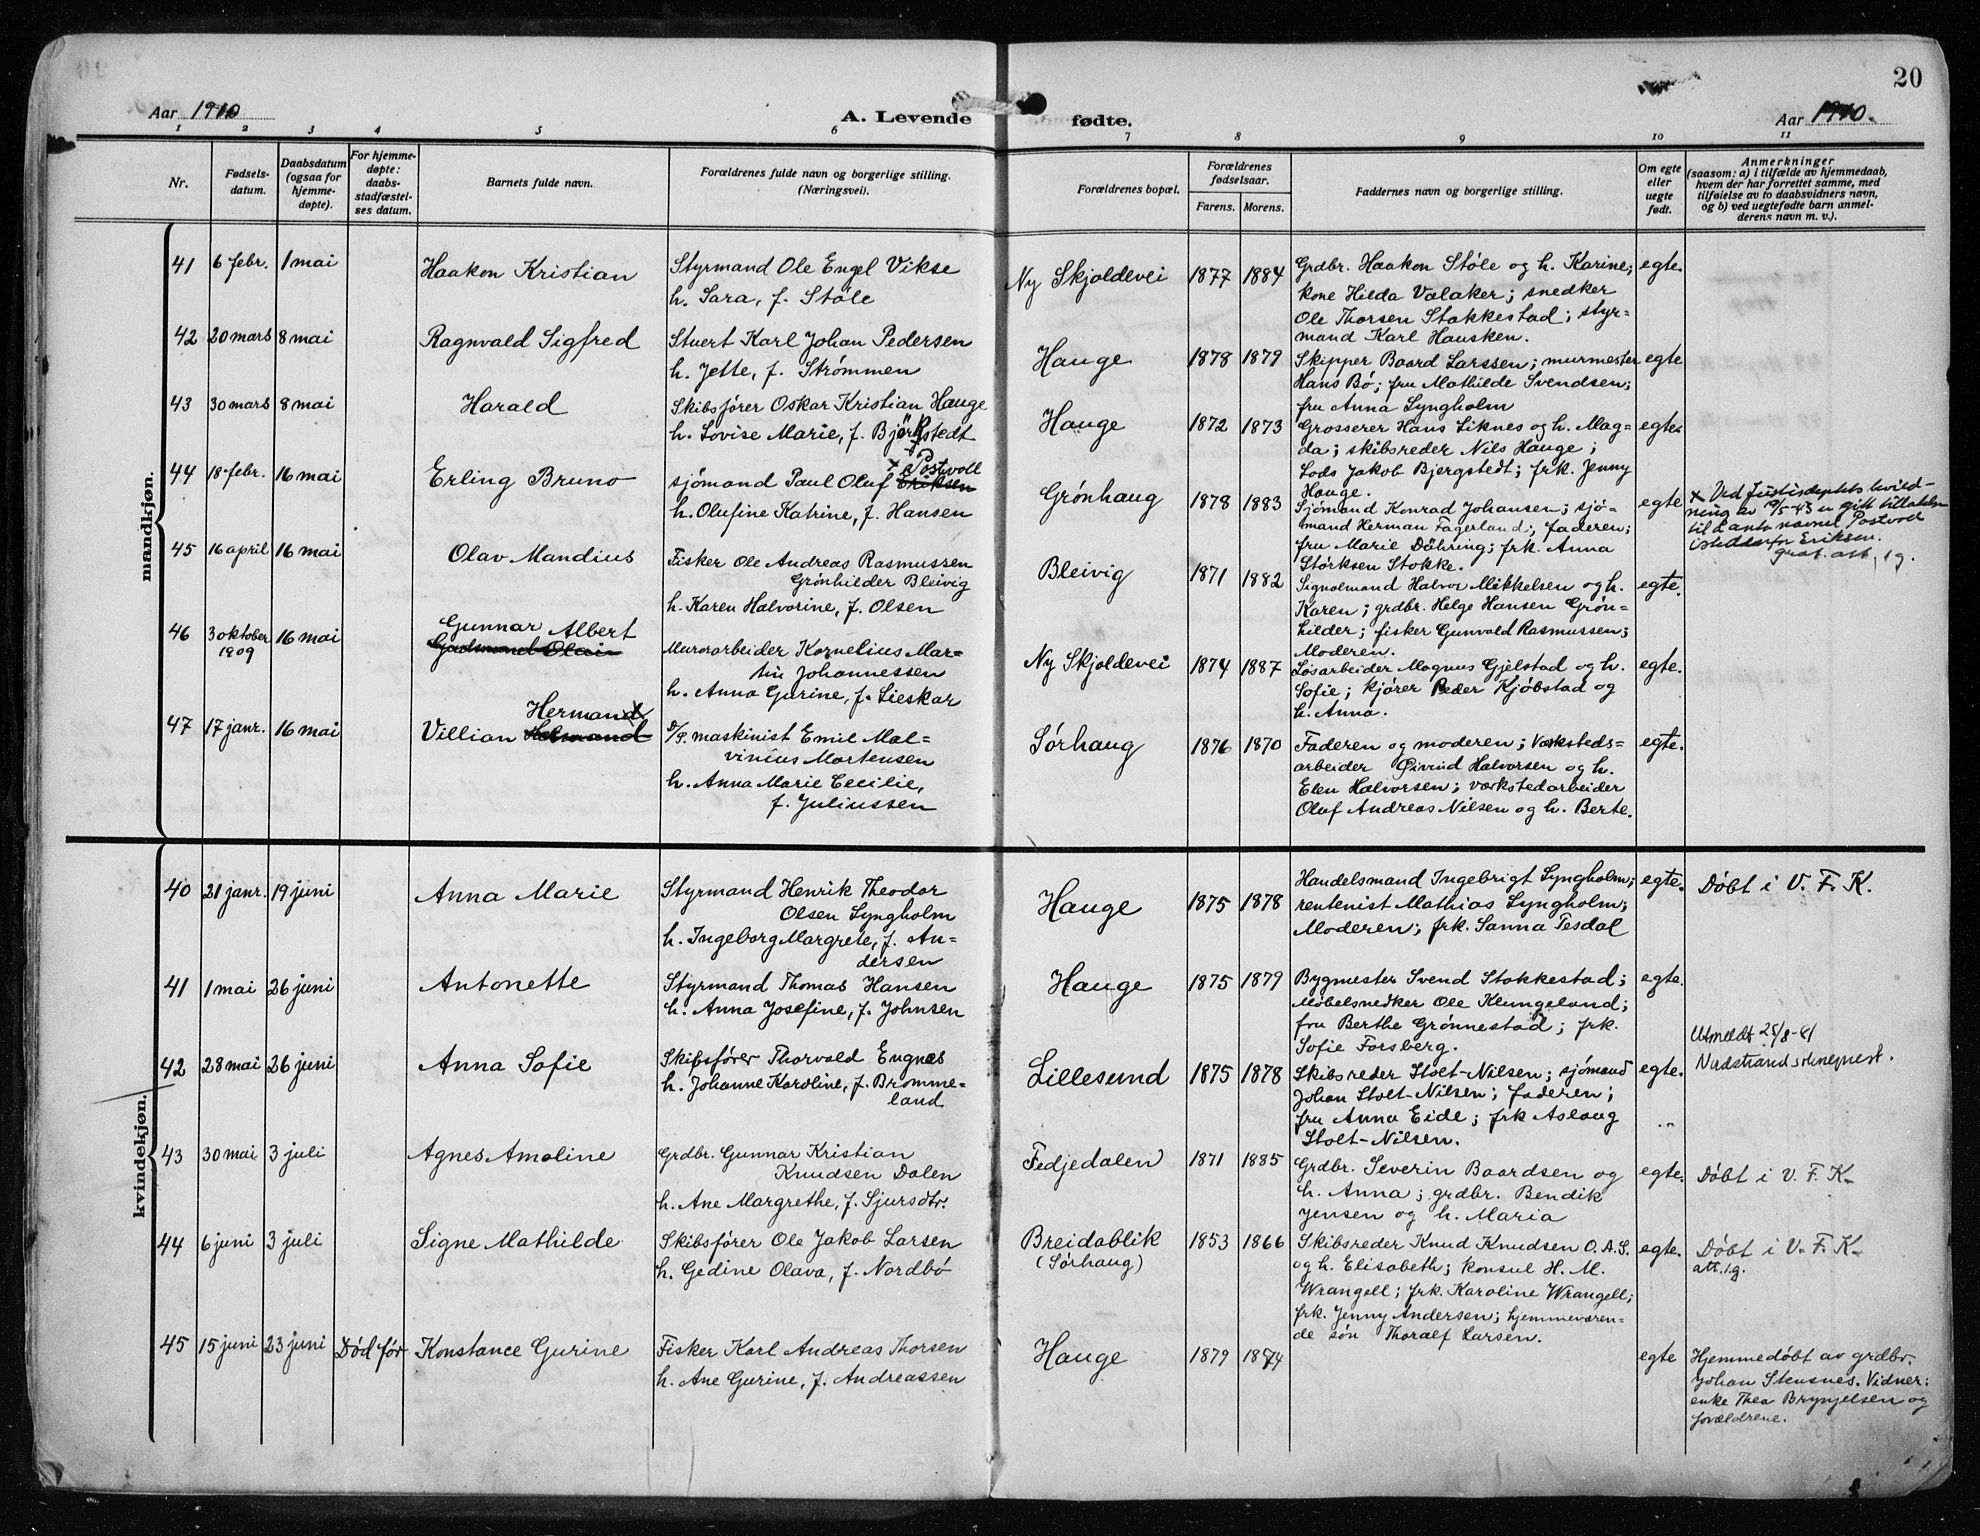 20
Aar 1910
A. Levende fødte.
Aar 1910.
1 2 3 4 5 6 7 8 9 10 11
Nr.
Fødsels-
datum.
Daabsdatum
(ogsaa for
hjemme-
døpte).
For hjemme-
døpte:
daabs-
stadfæstel-
ses datum.
Barnets fulde navn.
Forældrenes fulde navn og borgerlige stilling.
(Næringsvei).
Forældrenes bopæl.
Forældrenes
fødselsaar.
Farens. Morens.
Faddernes navn og borgerlige stilling.
Om egte
eller
uegte
født.
Anmerkninger
(saasom: a) i tilfælde av hjemmedaab,
hvem der har forrettet samme, med
tilføielse av to daabsvidners navn,
og b) ved uegtefødte barn anmel-
derens navn m. v.).
mandkjøn.
41 6 febr. 1 mai Haakon Kristian
Styrmand Ole Engel Vikse
h. Sara, f. Støle
Ny Skjoldevei 1877 1884
Grdbr. Haakon Støle og h. Karine;
kone Hilda Valaker; snedker
Ole Thorsen Stakkestad; styr=
mand Karl Hausken.
egte.
42 20 mars 8 mai Ragnvald Sigfred
Stuert Karl Johan Pedersen
h. Jette, f. Strømmen
Hauge 1878 1879
Skipper Baard Larssen; murmester
Hans Bø; fru Mathilde Svendsen;
fru Anna Lyngholm
egte
43 30 mars 8 mai Harald
Skibsfører Oskar Kristian Hauge
h. Lovise Marie, f. Bjørkstedt
Hauge 1872 1873
Grosserer Hans Liknes og h. Mag-
da; skibsreder Nils Hauge;
Lods Jakob Bjergstedt; frk. Jenny
Hauge.
egte.
44 18 febr. 16 mai Erling Bruno
x Postvoll
sjømand Paul Oluf Eriksen
h. Olufine Katrine, f. Hansen
Grønhaug 1878 1883
Sjømand Konrad Johansen; sjø-
mand Herman Fagerland; faderen;
fru Marie Döhring; frk. Anna
Størksen Stokke.
egte
x Ved Justisdeptets bevild-
ning av 10/5-43 er gitt tillatelse
til å anta navnet Postvoll
istedenfor Eriksen.
45 16 april 16 mai Olav Mandius
Fisker Ole Andreas Rasmussen
Grønhilder Bleivig
h. Karen Halvorine, f. Olsen
Bleivig 1871 1882
Signalmand Halvor Mikkelsen og h.
Karen; grdbr. Helge Hansen Grøn-
hilder; fisker Gunvald Rasmussen;
Moderen.
egte.
46 3 oktober
1909
16 mai
Gunnar Albert
Murarbeider Kornelius Mar-
tin Johannessen
h. Anna Gurine, f. Lieskar
Ny Skjoldevei 1874 1887
Løsarbeider Magnus Gjelstad og h.
Sofie; kjører Peder Kjøbstad og
h. Anna.
egte.
47 17 janr. 16 mai
Hermand
Villian
D/p. maskinist Emil Mal-
vinius Mortensen
h. Anna Marie Cecilie,
f. Juliussen
Sørhaug 1876 1870
Faderen og moderen; Værksteds=
arbeider Øivind Halvorsen og h.
Elen Halvorsen; værkstedarbeider
Oluf Andreas Nilsen og h. Berte.
egte.
kvindekjøn.
40 21 janr. 19 juni Anna Marie
Styrmand Henrik Theodor
Olsen Lyngholm
h. Ingeborg Margrete, f. An=
dersen
Hauge 1875 1878
Handelsmand Ingebrigt Lyngholm;
rentenist Mathias Lyngholm;
Moderen; frk. Sanna Tesdal
egte.
Døbt i V. F. K.
41 1 mai 26 juni Antonette
Styrmand Thomas Hansen
h. Anna Josefine, f. Johnsen
Hauge 1875 1879
Bygmester Svend Stakkestad;
Møbelsnedker Ole Klungeland;
fru Berthe Grønnestad; frk.
Sofie Forsberg.
egte.
42 28 mai 26 juni Anna Sofie
Skibsfører Thorvald Engnæs
h. Johanne Karoline, f. Bromme-
land
Lillesund 1875 1878
Skibsreder Stolt-Nilsen; sjømand
Johan Stolt-Nilsen; faderen;
fru Anna Eide; frk Aslaug
Stolt-Nilsen.
egte.
Utmeldt 25/8-41
43 30 mai 3 juli Agnes Amaline
Grdbr. Gunnar Kristian
Knudsen Dalen
h. Ane Margrethe, f. Sjursdtr.
Fedjedalen 1871 1885
Grdbr. Severin Baardsen og
h. Anna; grdbr. Bendik
Jensen og h. Maria
egte.
Døbt i V. F. K.
44 6 juni 3 juli Signe Mathilde
Skibsfører Ole Jakob Larsen
h. Gedine Olava, f. Nordbø
Breidablik
(Sørhaug)
1853 1866
Skibsreder Knud Knudsen O. A. S.
og h. Elisabeth; konsul H. M.
Wrangell; frk. Karoline Wrangell;
frk. Jenny Andersen; hjemmeværen-
de søn Thoralf Larsen.
egte.
Døbt i V. F. K.
att. 1g.
45 15 juni 23 juni Død før Konstance Gurine
Fisker Karl Andreas Thorsen
h. Ane Gurine, f. Andreassen
Hauge 1879 1874
egte
Hjemmedøbt av grdbr.
Johan Stensnes. Vidner:
enke Thea Brynjelsen og
forældrene.